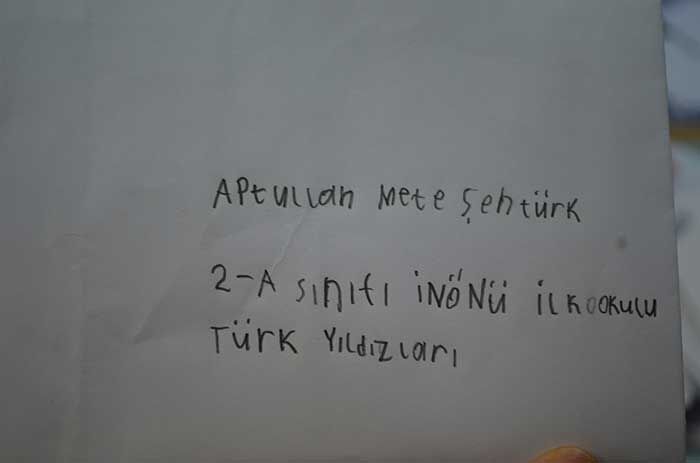 APtullah Mete Şentürk
2-A sınıfı İNÖNÜ İLKOOKULU
TÜRK Yıldızları